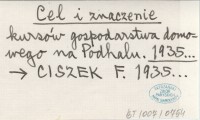 Cel i znaczenie
kursów gospodarstwa domo-
wego na Podhalu. 1935...
→ CISZEK F. 1935...